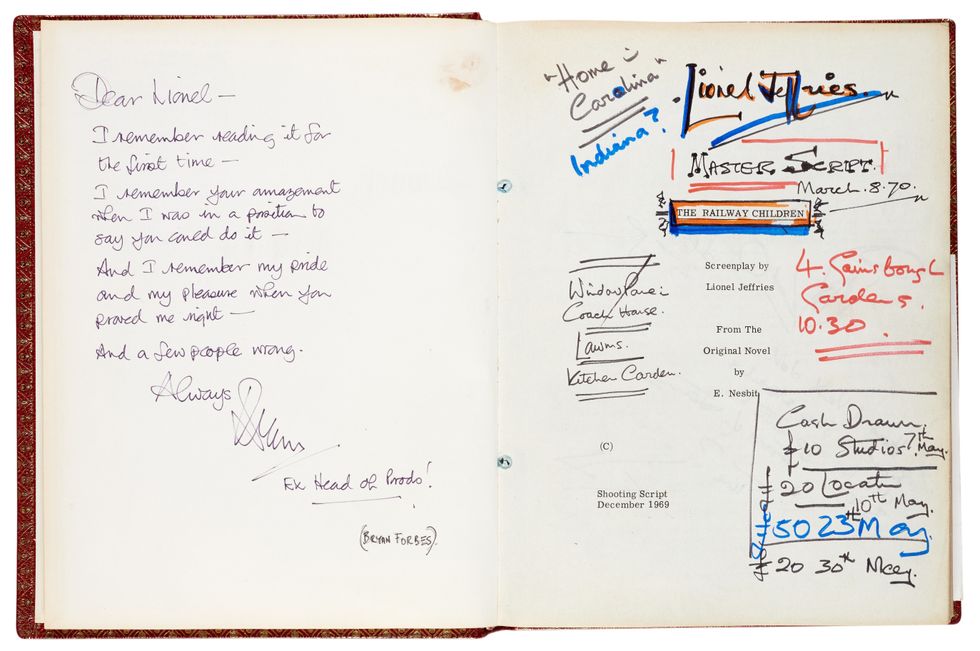 Dear Lionel —
I remember reading it for
the first time —
I remember your amazement
when I was in a position to
say you could do it —
And I remember my pride
and my pleasure when you
proved me right —
And a few people wrong.
Always
Ex Head of Prods!
(BRYAN FORBES).
"Home in
Carolina"
Indiana?
Lionel Jeffries.
MASTER SCRIPT.
March. 8. 70.
THE RAILWAY CHILDREN
Screenplay by
Lionel Jeffries
From The
Original Novel
by
E. Nesbit
(C)
Shooting Script
December 1969
Coach House.
Lawns.
Kitchen Garden.
4. Gainsborough
Gardens.
10.30.
Cash Drawn
£10 Studios 7th May.
20 Locatn
10th May.
50 23rd May
£20 30th May.